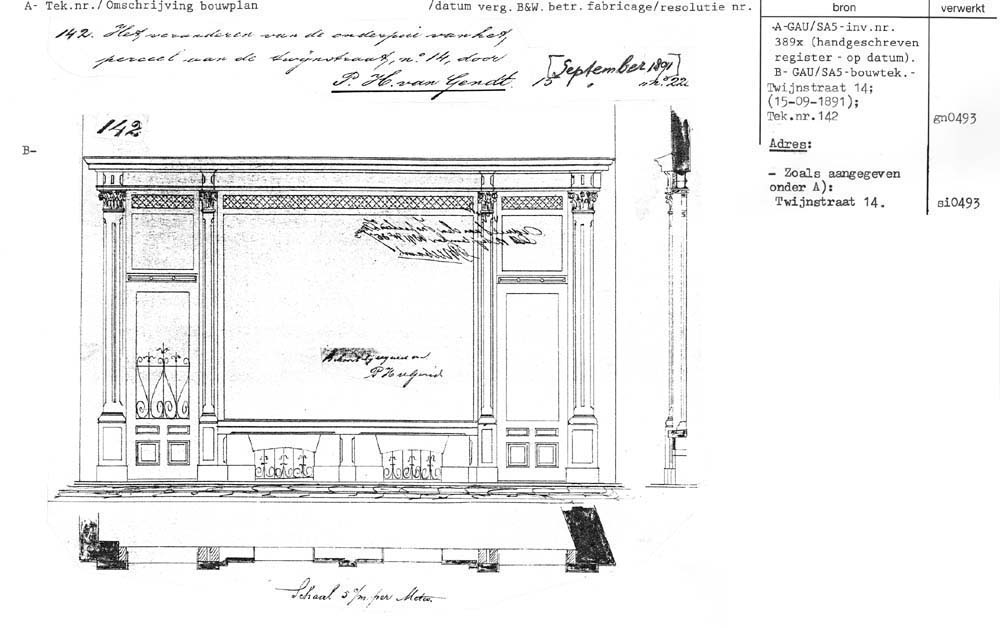 A- Tek.nr./Omschrijving bouwplan /datum verg. B&W. betr. fabricage/resolutie nr.
142. Het veranderen van de onderpui van het
perceel aan de Twijnstraat, n.o 14, door
P. H. van Gendt.
[September 1891]
15 " n.o 22
142
B-
P H v Gend
Schaal 5 c/m. per Meter.
bron
verwerkt
A-GAU/SA5-inv.nr.
389x (handgeschreven
register - op datum).
B- GAU/SA5-bouwtek.-
Twijnstraat 14;
(15-09-1891);
Tek.nr.142
gn0493
Adres:
- Zoals aangegeven
onder A):
Twijnstraat 14.
si0493